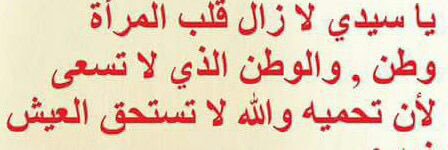 يا سيدي لا زال قلب المرأة
وطن , والوطن الذي لا تسعى
لأن تحميه والله لا تستحق العيش